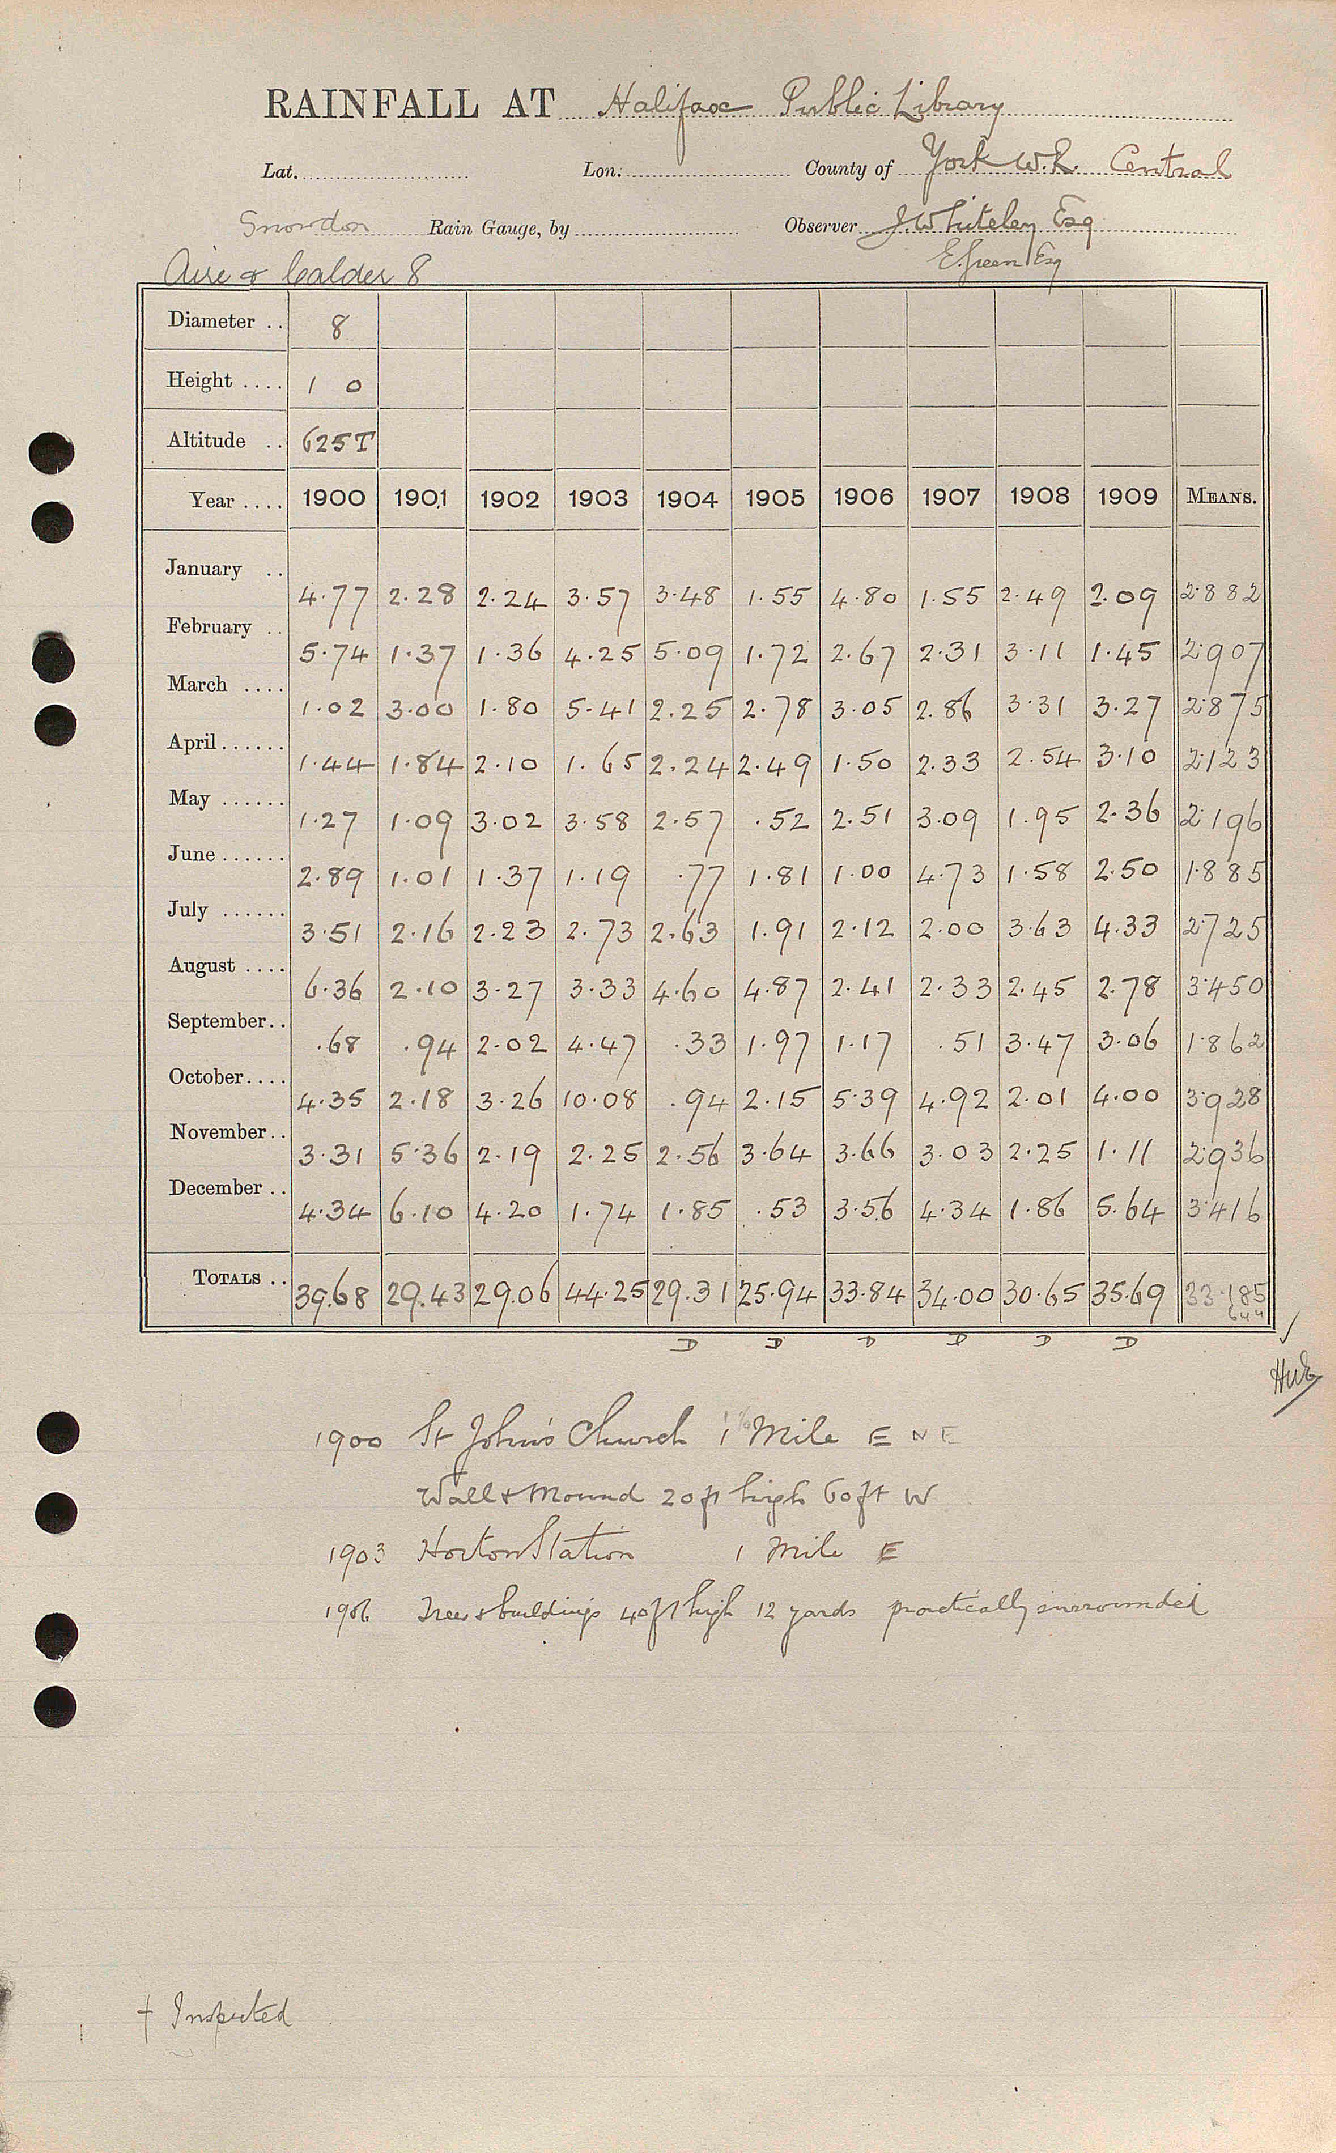 RAINFALL AT Halifax Public Library
Lat. Lon: County of York W.R. Central
Snowdon Rain Gauge, by Observer J. Whiteley Esq
Aire & Calder 8 E. Green Esq
Diameter .. 8
Height .... 1 0
Altitude .. 625T
Year .... 1900 1901 1902 1903 1904 1905 1906 1907 1908 1909 MEANS.
January .. 4.77 2.28 2.24 3.57 3.48 1.55 4.80 1.55 2.49 2.09 2.882
February .. 5.74 1.37 1.36 4.25 5.09 1.72 2.67 2.31 3.11 1.45 2.907
March .... 1.02 3.00 1.80 5.41 2.25 2.78 3.05 2.86 3.31 3.27 2.875
April...... 1.44 1.84 2.10 1.65 2.24 2.49 1.50 2.33 2.54 3.10 2.123
May ...... 1.27 1.09 3.02 3.58 2.57 .52 2.51 3.09 1.95 2.36 2.196
June ...... 2.89 1.01 1.37 1.19 .77 1.81 1.00 4.73 1.58 2.50 1.885
July ...... 3.51 2.16 2.23 2.73 2.63 1.91 2.12 2.00 3.63 4.33 2.725
August .... 6.36 2.10 3.27 3.33 4.60 4.87 2.41 2.33 2.45 2.78 3.450
September.. .68 .94 2.02 4.47 .33 1.97 1.17 .51 3.47 3.06 1.862
October.... 4.35 2.18 3.26 10.08 .94 2.15 5.39 4.92 2.01 4.00 3.928
November.. 3.31 5.36 2.19 2.25 2.56 3.64 3.66 3.03 2.25 1.11 2.936
December .. 4.34 6.10 4.20 1.74 1.85 .53 3.56 4.34 1.86 5.64 3.416
TOTALS .. 39.68 29.43 29.06 44.25 29.31 25.94 33.84 34.00 30.65 35.69 33.185
D D D D D D
1900 St John's Church 1 Mile E N E
Wall & Mound 20 ft high 60 ft W
1903 Horton Station 1 Mile E
1906 Trees & buildings 40 ft high 12 yards practically surrounded
† Inspected